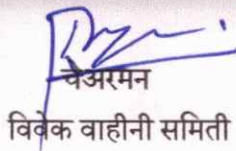 चेअरमन
विवेक वाहीनी समिती